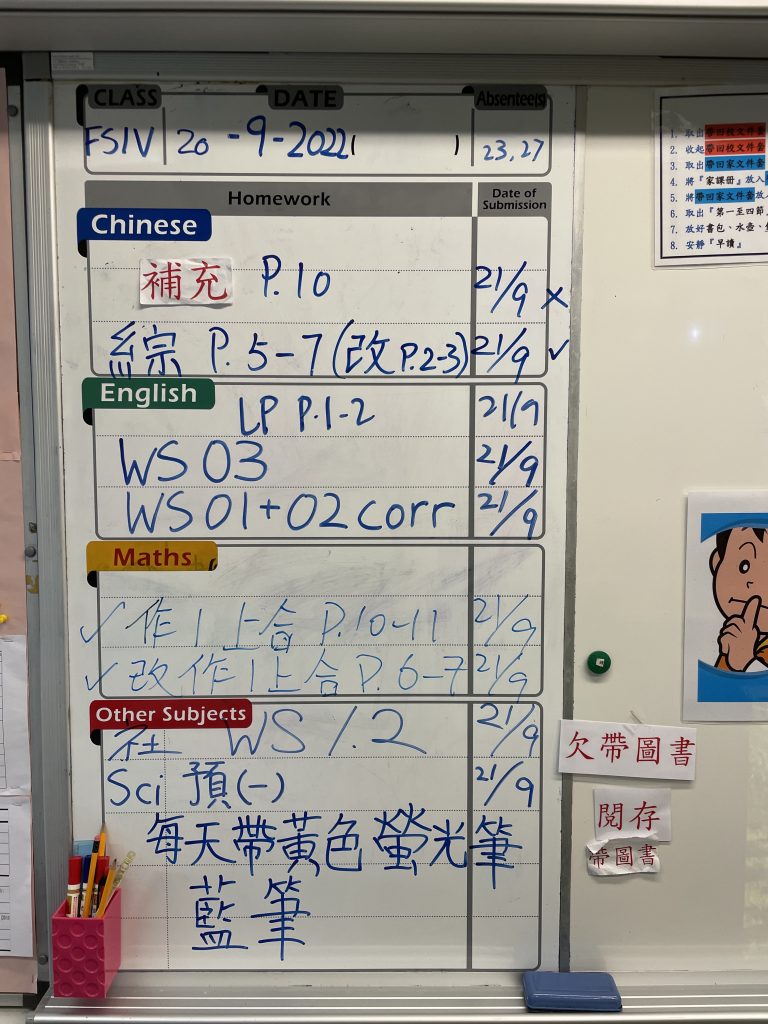 CLASS DATE Absentee(s)
FSIV 20-9-2022( ) 23,27
Homework Date of Submission
Chinese
補充 P.10 21/9 ×
綜 P.5-7(改P.2-3) 21/9 ✓
English
LP P.1-2 21/9
WS 03 21/9
WS01+02 corr 21/9
Maths
✓ 作1上合 P.10-11 21/9
✓ 改作1上合 P.6-7 21/9
Other Subjects
社 WS 1.2 21/9
Sci 預(一) 21/9
每天帶黃色螢光筆
藍筆
1. 取出帶回校文件套
2. 收起帶回校文件套
3. 取出帶回家文件套
4. 將『家課冊』放入
5. 將帶回家文件套放入
6. 取出『第一至四節
7. 放好書包、水壺、
8. 安靜『早讀』
欠帶圖書
閱存
帶圖書